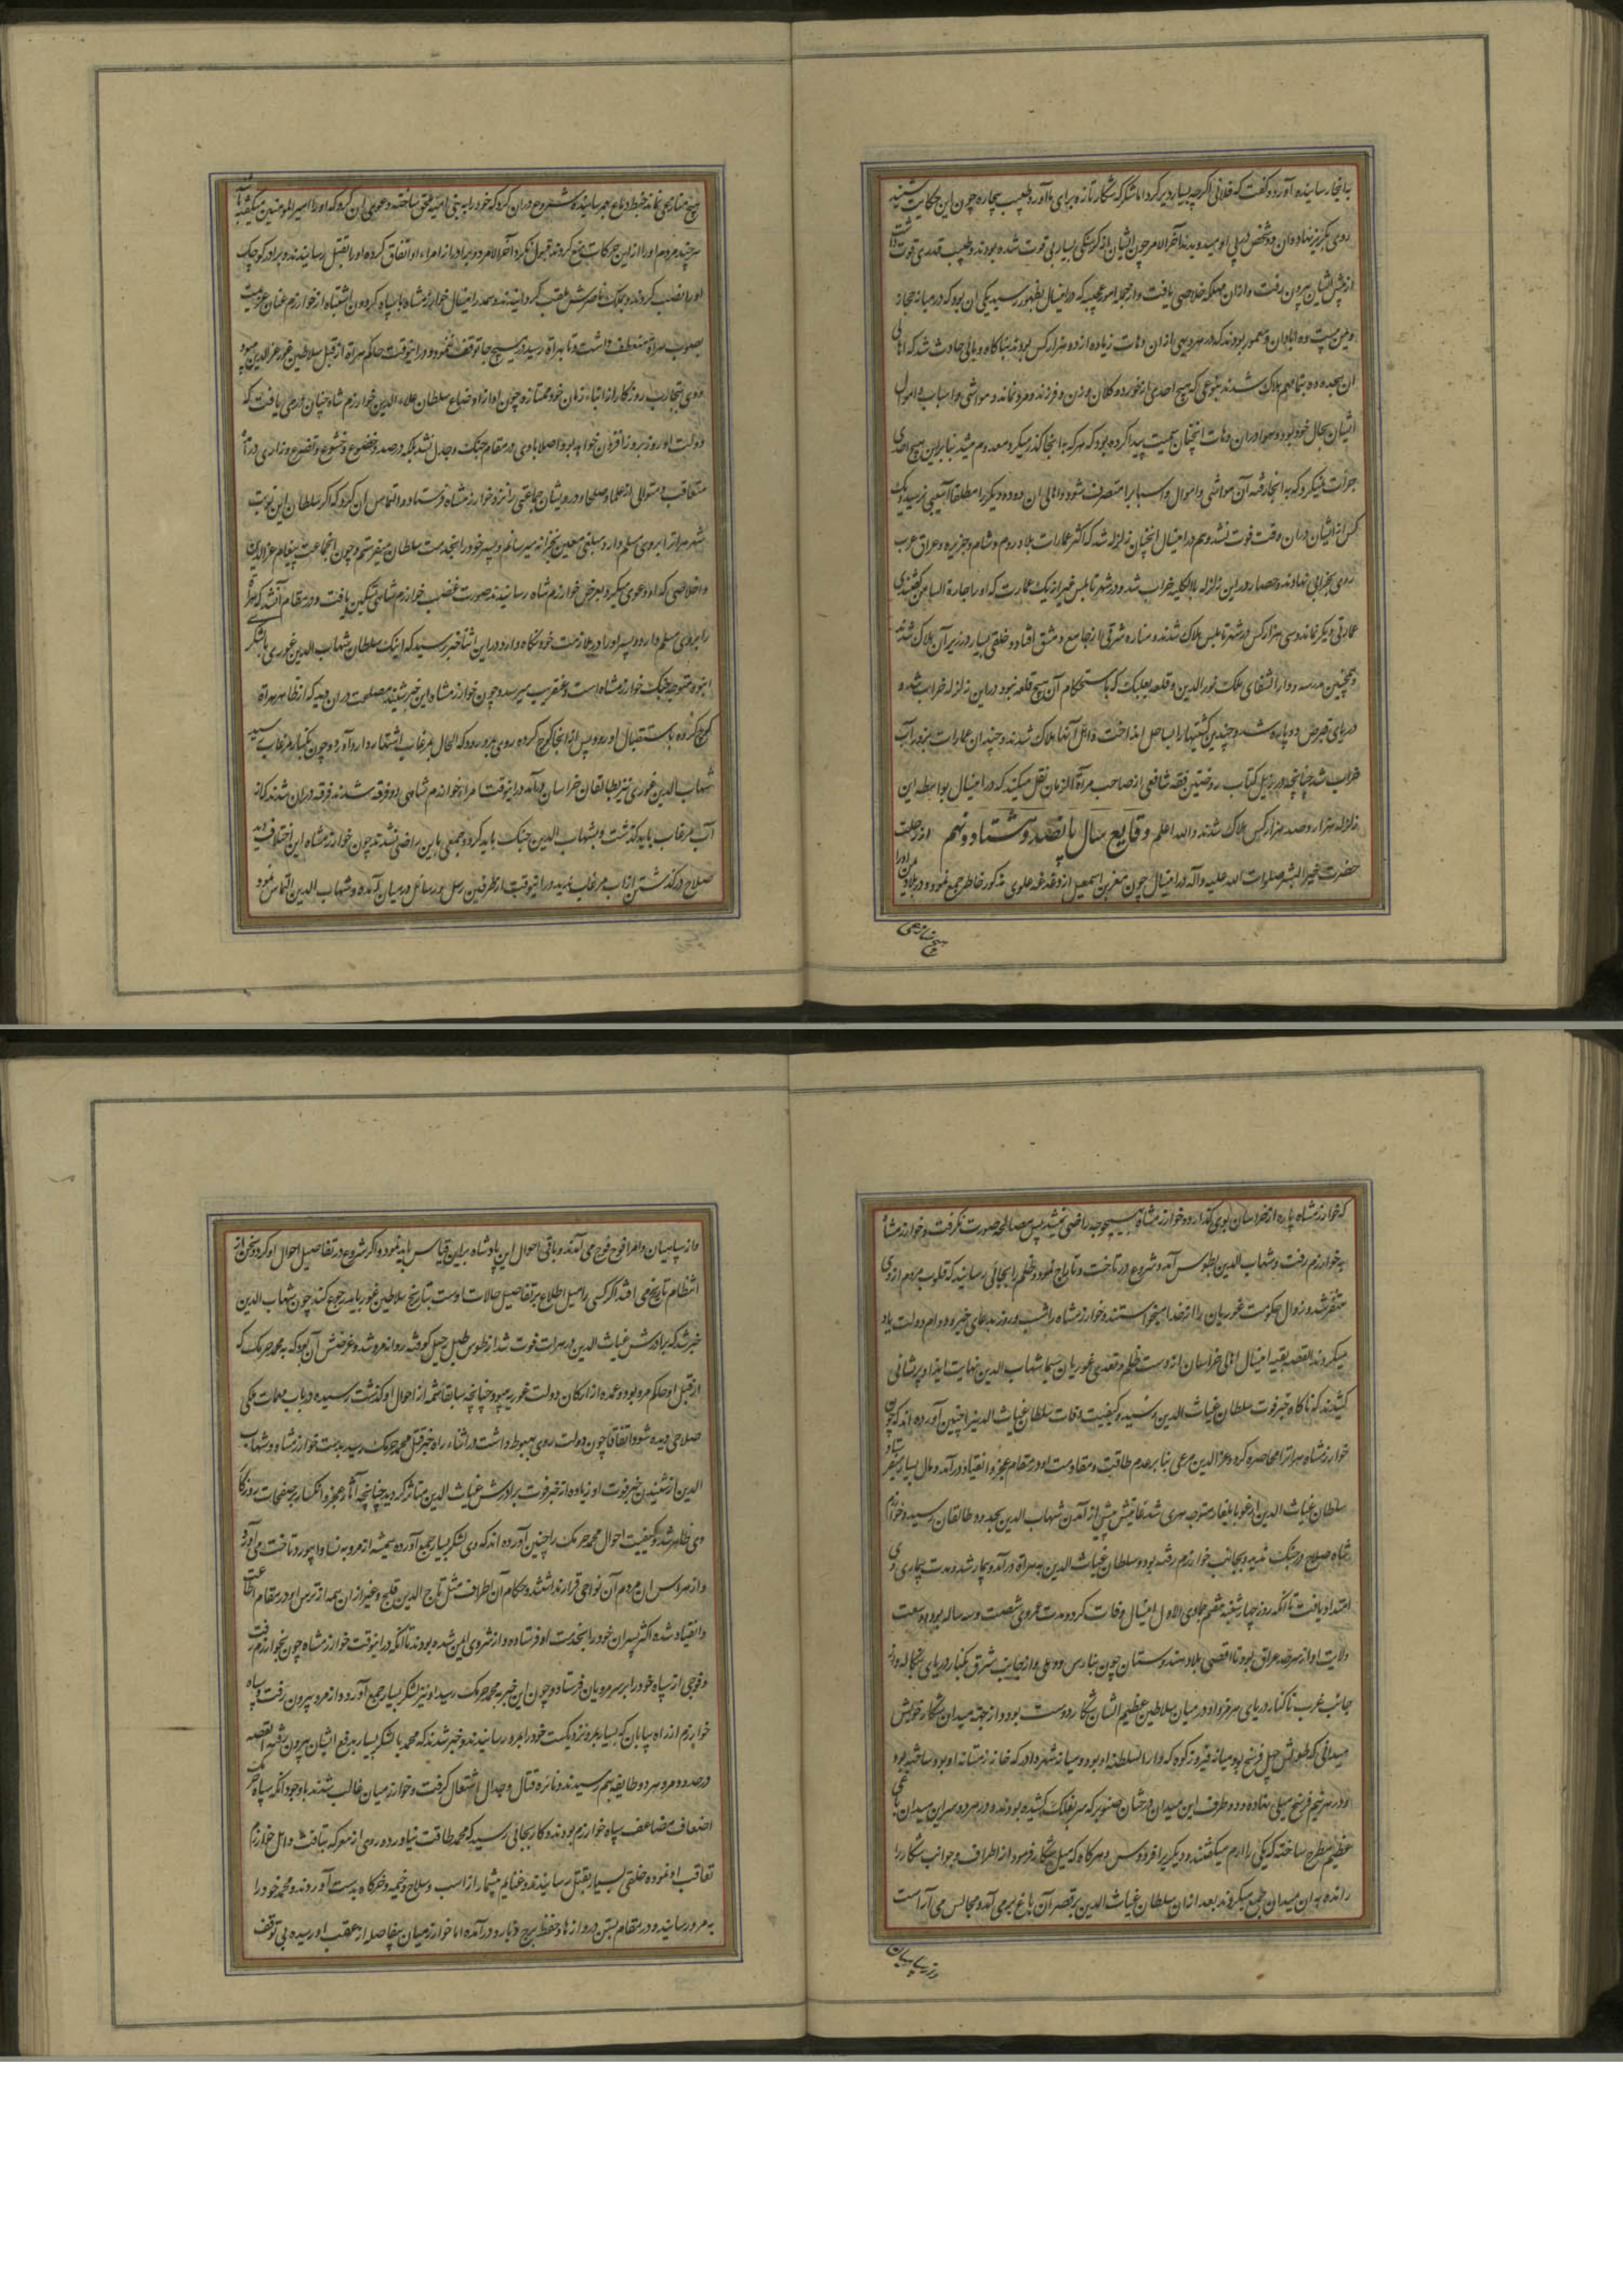 به انجا رسانیده آورد و گفت که فلانی اگرچه بسیار دیر کرد اما شکر که شکار تازه برای ما آورد طبیب بیچاره چون این حکایت شنید
روی بگریز نهاد و آن دو شخص در پی او میدویدند آخر الامر چون ایشان از گرسنگی بسیار بی قوت شده بودند و طبیب قدری قوت داشت
از پیش ایشان بیرون رفت و ازان مهلکه خلاصی یافت و از جمله امور عجیبه که در اینسال بظهور رسید یکی ان بود که در میانه حجاز
و یمن بیست ده ابادان و معمور بودند که در هر دیهی ازان دهات زیاده از دو هزار کس بودند بناکاه وبایی حادث شد که اهالی
ان هجده ده بتمامهم هلاک شدند بنوعی که هیچ احدی از خورد و کلان و زن و فرزند و مرد نماند و مواشی و اسباب و اموال
ایشان بحال خود بود و هوا در ان دهات انچنان سمیت پیدا کرده بود که هر که به انجا گذر میکرد معدوم میشد بنابراین هیچ احدی
جرات نمیکرد که به انجا رفته آن مواشی و اموال و اسباب را متصرف شود و اهالی ان دو ده دیگر را مطلقا آسیبی نرسید و یک
کس از ایشان دران وقت فوت نشد و هم در اینسال انچنان زلزله شد که اکثر عمارات بلاد روم و شام و جزیره و عراق عرب
روی بخرابی نهادند و حصار در این زلزله بالکلیه خراب شد و در شهر نابلس غیر از یک عمارت که او را حارة السامره گفتندی
عمارتی دیگر نماند و سی هزار کس در شهر نابلس هلاک شدند و مناره شرقی از جامع دمشق افتاد و خلقی بسیار در زیر آن هلاک شدند
و همچنین مدرسه و دار الشفای ملک نور الدین و قلعه بعلبک که باستحکام آن هیچ قلعه نبود در این زلزله خراب شد و
دریای قبرض دو پاره شد و چندین کشتیها را بساحل انداخت و اهل آنها هلاک شدند و چندان عمارات بزور آب
خراب شد چنانچه در ذیل کتاب روضتین فقه شافعی از صاحب مرآة الزمان نقل میکند که در اینسال بواسطه این
زلزله هزار و صد هزار کس هلاک شدند والله اعلم وقایع سال پانصد و هشتاد و نهم از رحلت
حضرت خیر البشر صلوات الله علیه و آله در اینسال چون معز بن اسمعیل از دغدغه علوی مذکور خاطر جمع نمود و در بلاد یمن او را
هیچ منازعی
هیچ منازعی نماند خبط دماغ بهم رسانیده شروع دران کرد که خود را به بنی امیه ملحق ساخته دعوی ان کرد که او را امیر المومنین میگفته باشند
هرچند مردم او را از این حرکات منع کردند قبول نکرد آخر الامر دو برادر از امراء او اتفاق کرده او را بقتل رسانیدند و برادر کوچک
او را نصب کردند و بملک ناصرش ملقب گردانیدند و هم در اینسال خوارزمشاه با سپاه گردون اشتباه از خوارزم عنان عزیمت
بصوب هراة منعطف داشت و تا بهراة رسیدن هیچ جا توقف ننمود و در اینوقت حاکم هراة از قبل سلاطین غور عز الدین بود
و وی بتجارب روزگار از ابناء زمان خود ممتاز و چون او از اوضاع سلطان علاء الدین خوارزم شاه چنان فرمی یافت که
دولت او روز بروز افزون خواهد بود اصلا با وی در مقام جنک و جدل نشد بلکه در صدد خضوع و خشوع و تضرع و زاری در آمد
متعاقب و متوالی از علما و صلحا و درویشان جماعتی را نزد خوارزمشاه فرستاد و التماس ان کرد که اکر سلطان این نوبت
شهر هراترا بر وی مسلم دارد و مبلغی معین بخزانه میرسانم و پسر خود را بخدمت سلطان میفرستم و چون انجماعت پیغام عز الدین
و اخلاصی که او دعوی میکرد بعرض خوارزم شاه رسانیدند صورت غضب خوارزمشاهی تسکین یافت و در مقام آن شد که هراة
را بر وی مسلم دارد و پسر او را در ملازمت خود نگاه دارد در این اثنا خبر رسید که اینک سلطان شهاب الدین غوری با لشکر
انبوه متوجه جنک خوارزمشاه است و عنقریب میرسد و چون خوارزمشاه این خبر شنید مصلحت دران دید که از ظاهر هراة
کوچ کرده باستقبال او رود پس از انجا کوچ کرده روی بمرو رود که الحال بمرغاب اشتهار دارد آورد و چون بکنار مرغاب رسید
شهاب الدین غوری نیز بطالقان خراسان در آمد در اینوقت امراء خوارزم شاهی دو فرقه شدند فرقه دران شدند که از
آب مرغاب باید گذشت و بشهاب الدین جنک باید کرد و جمعی باین راضی نشدند چون خوارزمشاه این اختلاف دید
صلاح در گذشتن از آب مرغاب ندید در اینوقت از طرفین رسل و رسائل در میان آمده و شهاب الدین التماس نمود
که خوارزمشاه پاره از خراسان بوی گذارد و خوارزمشاه بهیچوجه راضی نمیشد پس مصالحه صورت نگرفت و خوارزمشاه
به خوارزم رفت و شهاب الدین بطوس آمد و شروع در تاخت و تاراج نمود و ظلم را بجائی رسانید که قلوب مردم از وی
متنفر شد و زوال حکومت غوریان را از خدا میخواستند و خوارزمشاه را شب و روز بدعای خیر و دوام دولت یاد
میکردند القصه بقیه اینسال اهالی خراسان از دست ظلم و تعدی غوریان سیما شهاب الدین نهایت ایذا و پریشانی
کشیدند که ناکاه خبر فوت سلطان غیاث الدین رسید و کیفیت وفات سلطان غیاث الدین را چنین آورده اند که چون
خوارزمشاه هراترا محاصره کرد و عز الدین مرعی بنابر عدم طاقت و مقاومت او در مقام عجز و انقیاد در آمد و مال بسیار میفرستاد
سلطان غیاث الدین از غور بایلغار متوجه هری شد تا پیش از آمدن شهاب الدین بحدود طالقان رسید و خوارزم
شاه صلاح در جنک ندید و بجانب خوارزم رفته بود و سلطان غیاث الدین بهراة در آمد و بیمار شد و مدت بیماری وی
امتداد یافت تا آنکه روز چهارشنبه هفتم جمادی الاول اینسال وفات کرد و مدت عمر وی شصت و سه ساله بود و وسعت
ولایت او از سرحد عراق بود تا اقصی بلاد هندوستان چون بنارس و دهلی و از جانب مشرق بکنار دریای بنگاله و از
جانب غرب تا کنار دریای هرمز و او در میان سلاطین عظیم الشان شکار دوست بود و از جهة میدان شکار خویش
میدانی که طولش چهل فرسخ بود میانه فیروزکوه که دار السلطنه او بود و میانه شهر داور که خانه زمستانه او بود ساخته بود
و در هر نیم فرسخ میلی نهاده و دو طرف این میدان درختان صنوبر که سر بفلک کشیده بودند و در هر دو سر این میدان باغی
عظیم طرح ساخته که یکی را ارم میکفتند و دیکریرا فردوس و هر کاه که میل شکار فرمود از اطراف و جوانب شکار را
رانده به ان میدان جمع میکردند بعد ازان سلطان غیاث الدین بر قصر آن باغ بر می آمد و مجالس می آراست
و از سپاهیان
و از سپاهیان و امرا فوج فوج می آمدند و باقی احوال این پادشاه براین قیاس باید نمود اکر شروع در تفاصیل احوال او کرده سخن از
انتظام تاریخ می افتد اکر کسی را میل اطلاع بر تفاصیل حالات اوست بتاریخ سلاطین غور باید رجوع کند چون شهاب الدین
خبر شد که برادرش غیاث الدین در هرات فوت شد از طوس طبل رحیل کوفته روانه مرو شد و غرضش آن بود که به محمد خرنک که
از قبل او حاکم مرو بود و عمده از ارکان دولت غوریه میبود چنانچه سابقا شمه از احوال او گذشت رسیده در باب مهمات ملکی
صلاحی دیده شود اتفاقا چون دولت روی بهبوط داشت در اثناء راه خبر قتل محمد خرنک رسید بدست خوارزمشاه و شهاب
الدین از شنیدن خبر فوت او زیاده از خبر فوت برادرش غیاث الدین متاثر گردید چنانچه آثار عجز و انکسار بر صفحات روزگار
وی ظاهر شد و کیفیت احوال محمد خرنک را چنین آورده اند که وی لشکر بسیار جمع آورده همیشه از مرو به نسا و ابیورد تاخت می آورد
و از هراس ان مردم آن نواحی قرار نداشتند و حکام آن اطراف مثل تاج الدین قلیج و غیر ازان همه از ترس او در مقام اطاعت
و انقیاد شده اکثر پسران خود را بخدمت او فرستاده و از شر وی ایمن شده بودند تا آنکه در اینوقت خوارزمشاه چون بخوارزم رفت
و فوجی از سپاه خود را بر سر مرویان فرستاد و چون این خبر به محمد خرنک رسید او نیز لشکر بسیار جمع آورد و از مرو بیرون رفت و سپاه
خوارزم از راه بیابان که بسیار بمرو نزدیکست خود را بمرو رسانیدند و خبر شدند که محمد با لشکر بسیار بدفع ایشان بیرون رفته القصه
در حدود مرو هر دو طایفه بهم رسیدند و نائره قتال و جدال اشتعال گرفت و خوارزمیان غالب شدند با وجود انکه سپاه خرنک
اضعاف مضاعف سپاه خوارزم بودند و کار بجائی رسید که محمد طاقت نیاورده روی از معرکه بتافت و اهل خوارزم
تعاقب او نموده خلقی بسیار بقتل رسانیدند و غنایم بیشمار از اسب و سلاح و خیمه و خرگاه بدست آوردند و محمد خود را
به مرو رسانید و در مقام بستن دروازها و حفظ برج و بارو در آمده اما خوارزمیان بیفاصله از عقب او رسیده بی توقف